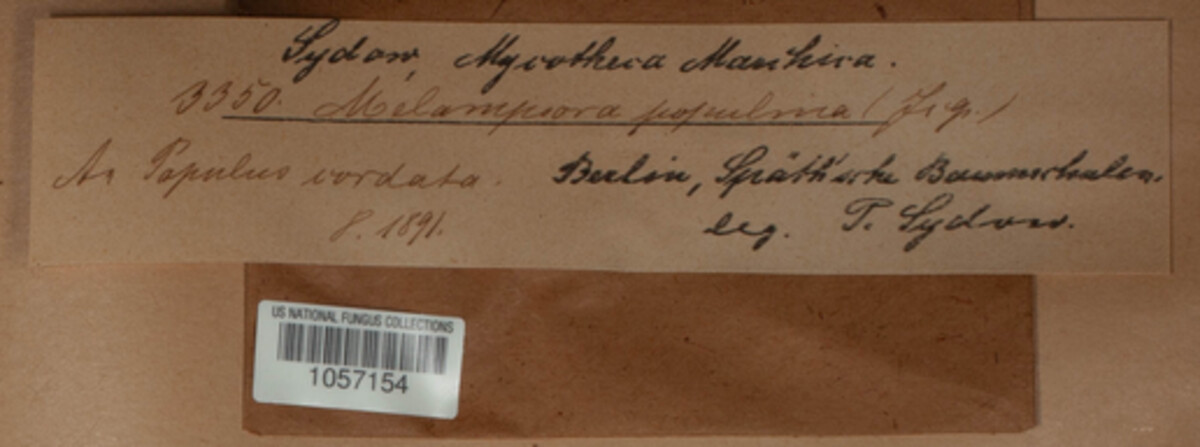 Sydow, Mycotheca Marchica.
3350. Melampsora populina (Jcq.)
An Populus cordata. Berlin, Späth'sche Baumschulen.
8. 1891. leg. P. Sydow.
US NATIONAL FUNGUS COLLECTIONS
1057154